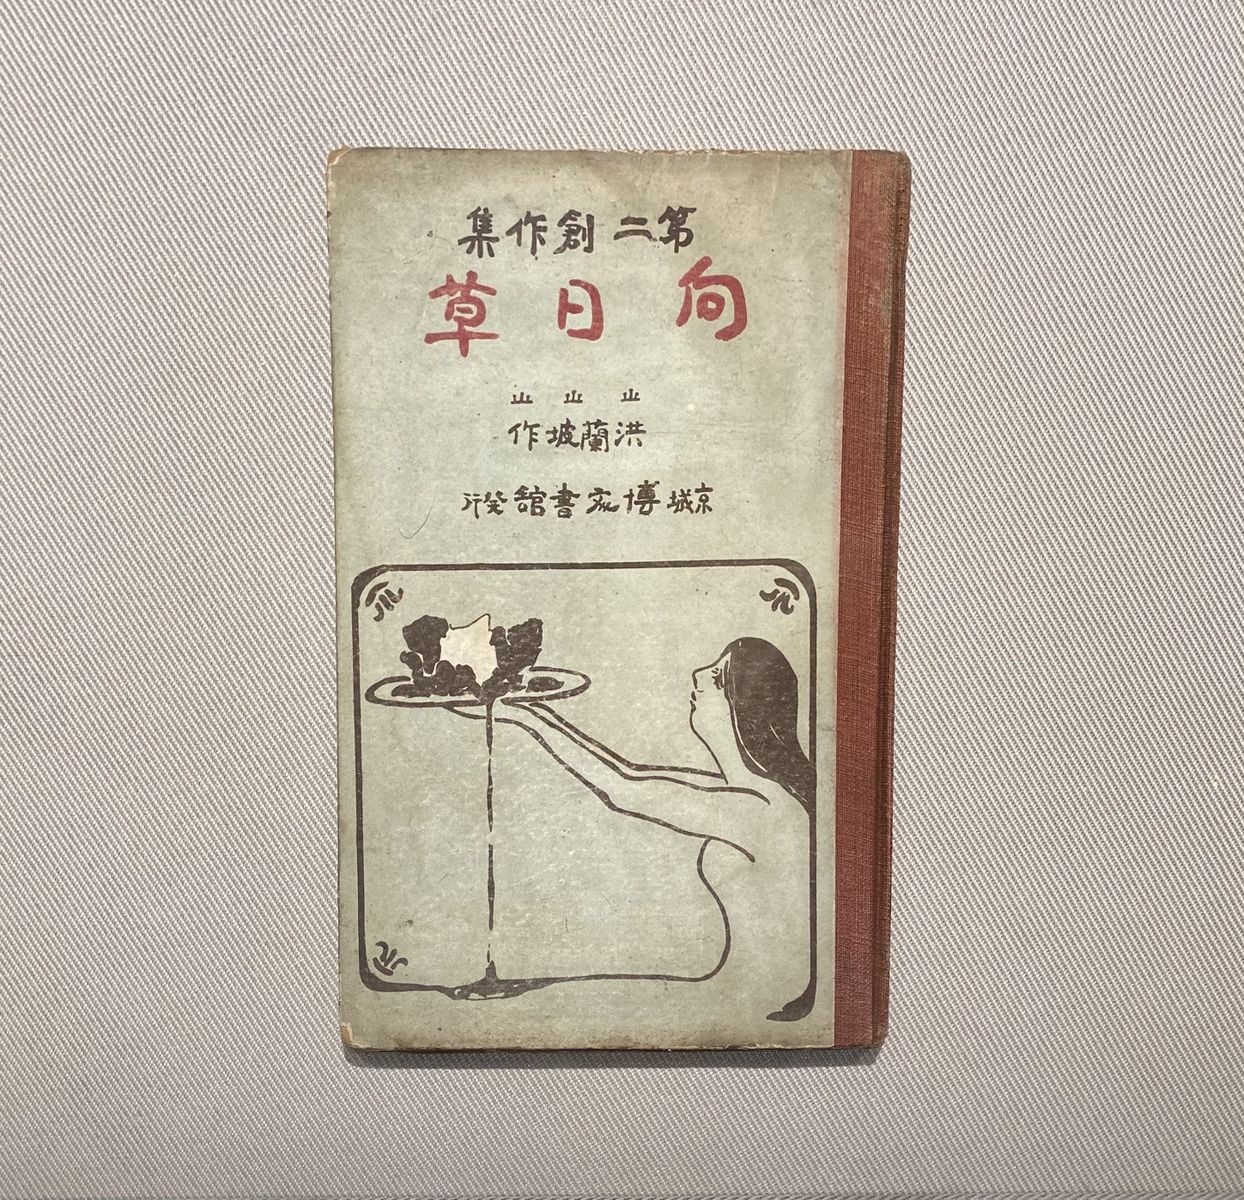 第二創作集
向日草
洪蘭坡作
京城博文書舘發行